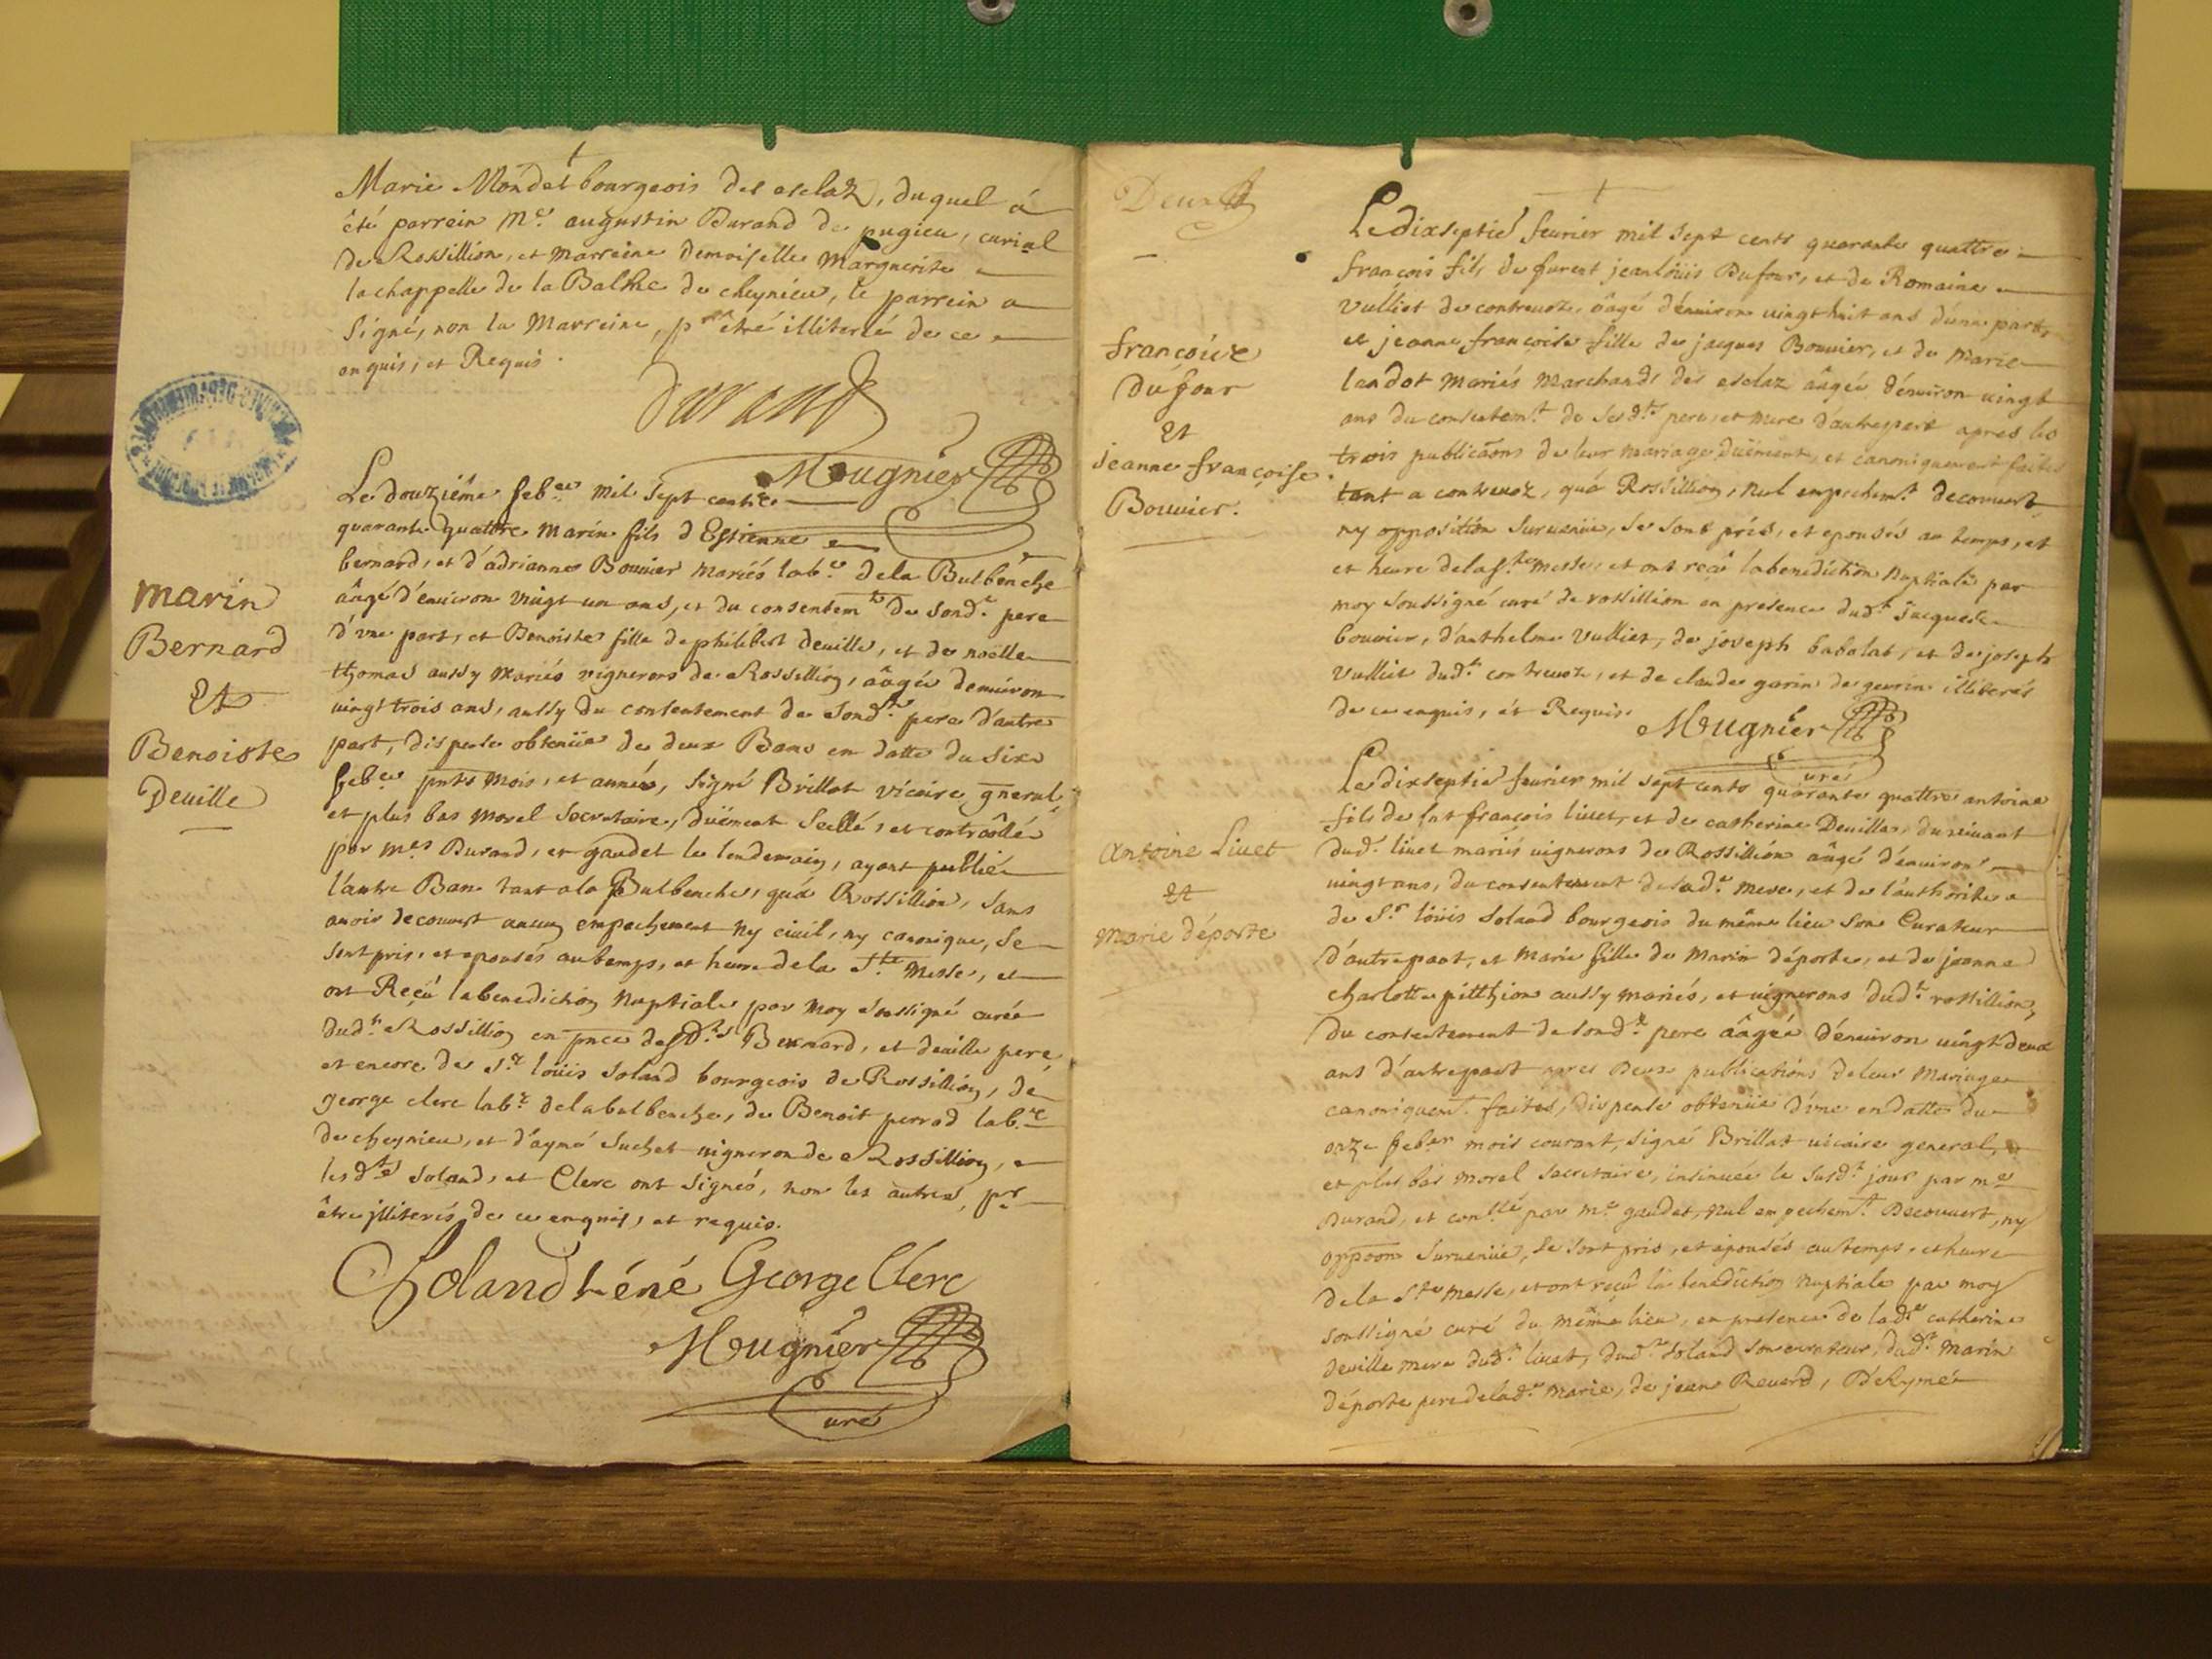 Marie Mondet bourgeois des esclaz, duquel a
été parrein Me. augustin Durand de pugieu, curial
de Rossillion, et marreine demoiselle Marguerite
lachappelle de la Balme de cheynieu, le parrein a
signé, non la Marreine, pr être illiterée de ce
enquis, et Requis.
Durand
Mougnier
Marin
Bernard
Et
Benoiste
Deville
Le douziéme feber mil sept centz
quarante quattre marin fils d'Estienne
bernard, et d'adrianne Bouvier mariés labr. de la Bulbenche
âagé d'environ vingt un ans, et du consentemt de sond. pere
d'une part, et Benoiste fille de philibert deville, et de noëlle
thomas aussy mariés vignerons de Rossillion, âagée d'environ
vingt trois ans, aussy du consentement de sondt. pere d'autre
part, dispense obtenüe de deux Bans en datte du six
feber pnts mois, et année, signé Brillat vicaire gneral,
et plus bas morel secretaire, düement scellé, et controôllé
par mes Durand, et gaudet le lendemain, ayant publié
l'autre Ban tant a la Bulbenche, qu'a Rossillion, sans
avoir decouvert aucun empechement ny civil, ny canonique, se
sont pris, et epousés au temps, et heure de la Ste Messe, et
ont Reçû la benediction Nuptiale par moy soussigné curé
dudt. Rossillion en pnce desdts Bernard, et deville pere,
et encore de sr. loüis soland bourgeois de Rossillion, de
george clerc labr. de la bulbenche, de Benoit perrad labr.
de cheynieu, et d'aymé suchet vigneron de Rossillion,
lesdts soland, et Clerc ont signés, non les autres, pr
être jlliterés de ce enquis, et requis.
Soland héné George Clerc
Mougnier
Curé
françoix
Dufour
Et
jeanne françoise
Bouvier.
Le dixseptié fevrier mil sept cents quarante quattre
françois fils de furent jean loüis Dufour, et de Romaine
vulliet de contrevoz, âagé d'environ vingt huit ans d'une part,
et jeanne françoise fille de jacques Bouvier, et de Marie
landot mariés marchands des esclaz âagée d'environ vingt
ans du consentemt. de sesdts pere, et mere d'autre part apres les
trois publicaõns de leur mariage düement, et canoniquement faites
tant a contrevoz, qu'a Rossillion, nul empechemt. decouvert
ny opposition survenüe, se sont pris, et epousés au temps, et
et heure de la ste messe, et ont reçû la benediction Nuptiale par
moy soussigné curé de rossillion en presence dudt. Jacques
bouvier, d'anthelme vulliet, de joseph babolat, et de joseph
vulliet dudt. contrevoz, et de claude garin de gevrin illiterés
de ce enquis, et Requis.
Mougnier
Curé
Antoine Livet
Et
Marie déporte
Le dixseptié fevrier mil sept cents quarante quattre antoine
fils de fut françois livet, et de catherine Deville, du vivant
dud. livet mariés vignerons de Rossillion âagé d'environ
vingt ans, du consentement de lade. mere, et de l'authorité
de Sr. loüis soland bourgeois du même lieu son Curateur
d'autre part, et Marie fille de Marin déporte, et de jeanne
charlotte pitthion aussy mariés, et vignerons dudt. rossillion,
du consentement de sondt. pere âagée d'environ vingt deux
ans d'autre part apres deux publications de leur mariage
canoniquemt. faites, dispense obtenüe d'une en datte du
onze feber mois courant, signé Brillat vicaire general,
et plus bas morel secretaire, insinuée le susdt. jour par me
Durand, et conllé par me. gaudet, nul empechemt. decouvert, ny
oppõon survenüe, se sont pris, et épousés au temps, et heure
de la ste messe, et ont reçû la benediction nuptiale par moy
soussigné curé du même lieu, en presence de lade. catherine
deville mere dudt. livet, dudt. soland son curateur, dudt. Marin
déporte pere de lade. marie, de jean Reverd, d'Aymé